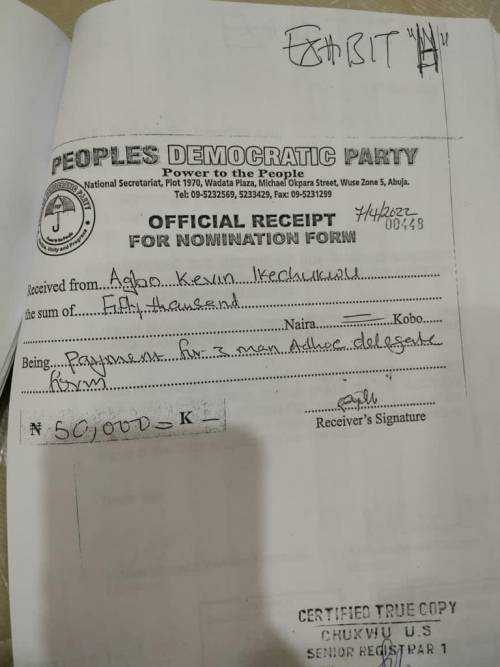 EXHIBIT "H"
PEOPLES DEMOCRATIC PARTY
Power to the People
National Secretariat, Plot 1970, Wadata Plaza, Michael Okpara Street, Wuse Zone 5, Abuja.
Tel: 09-5232569, 5233429, Fax: 09-5231299
OFFICIAL RECEIPT
7/4/2022
00448
FOR NOMINATION FORM
Received from Agbo Kevin Ikechukwu
the sum of Fifty thousand
Naira = Kobo
Being Payment for 3 man Adhoc delegate
form
₦ 50,000 = K —
Receiver's Signature
CERTIFIED TRUE COPY
CHUKWU U.S
SENIOR REGISTRAR 1